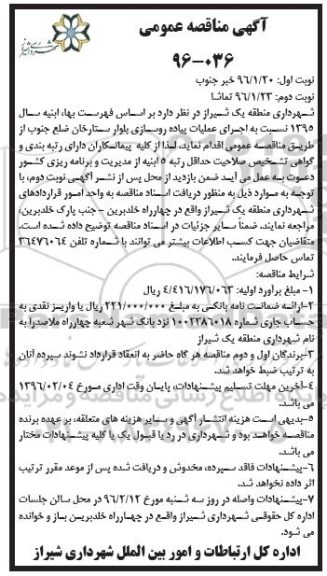 آگهی مناقصه عمومی
۹۶-۰۳۶
نوبت اول: ۹۶/۱/۲۰ خبر جنوب
نوبت دوم: ۹۶/۱/۲۳ تماشا
شهرداری منطقه یک شیراز در نظر دارد بر اساس فهرست بهاء ابنیه سال
۱۳۹۵ نسبت به اجرای عملیات پیاده روسازی بلوار ستارخان ضلع جنوب از
طریق مناقصه عمومی اقدام نماید، لذا از کلیه پیمانکاران دارای رتبه بندی و
گواهی تشخیص صلاحیت حداقل رتبه ۵ ابنیه از مدیریت و برنامه ریزی کشور
دعوت به عمل می آید ضمن بازدید از محل پس از نشر آگهی نوبت دوم، با
توجه به موارد ذیل به منظور دریافت اسناد مناقصه به واحد امور قراردادهای
شهرداری منطقه یک شیراز واقع در چهارراه خلدبرین - جنب پارک خلدبرین،
مراجعه نمایند. ضمناً سایر جزئیات در اسناد مناقصه توضیح داده شده است.
متقاضیان جهت کسب اطلاعات بیشتر می توانند با شماره تلفن ۳۶۴۷۶۰۶۴
تماس حاصل فرمایند.
شرایط مناقصه:
۱- مبلغ برآورد اولیه: ۴/۴۱۶/۱۷۶/۰۶۳ ریال
۲-ارائه ضمانت نامه بانکی به مبلغ ۲۲۱/۰۰۰/۰۰۰ ریال یا واریز نقدی به
حساب جاری شماره ۱۰۰۲۳۸۶۰۱۸ نزد بانک شهر شعبه چهارراه ملاصدرا به
نام شهرداری منطقه یک شیراز
۳-برندگان اول و دوم مناقصه هر گاه حاضر به انعقاد قرارداد نشوند سپرده آنان
به ترتیب ضبط خواهد شد.
۴-آخرین مهلت تسلیم پیشنهادات، پایان وقت اداری مورخ ۱۳۹۶/۰۲/۰۴
می باشد.
۵-بدیهی است هزینه انتشار آگهی و سایر هزینه های متعلقه، بر عهده برنده
مناقصه خواهد بود و شهرداری در رد یا قبول یک یا کلیه پیشنهادات مختار
می باشد.
۶-پیشنهادات فاقد سپرده، مخدوش و دریافت شده پس از موعد مقرر ترتیب
اثر داده نخواهد شد.
۷-پیشنهادات واصله در روز سه شنبه مورخ ۹۶/۲/۱۲ در محل سالن جلسات
اداره کل حقوقی شهرداری شیراز واقع در چهارراه خلدبرین باز و خوانده
می شود.
اداره کل ارتباطات و امور بین الملل شهرداری شیراز